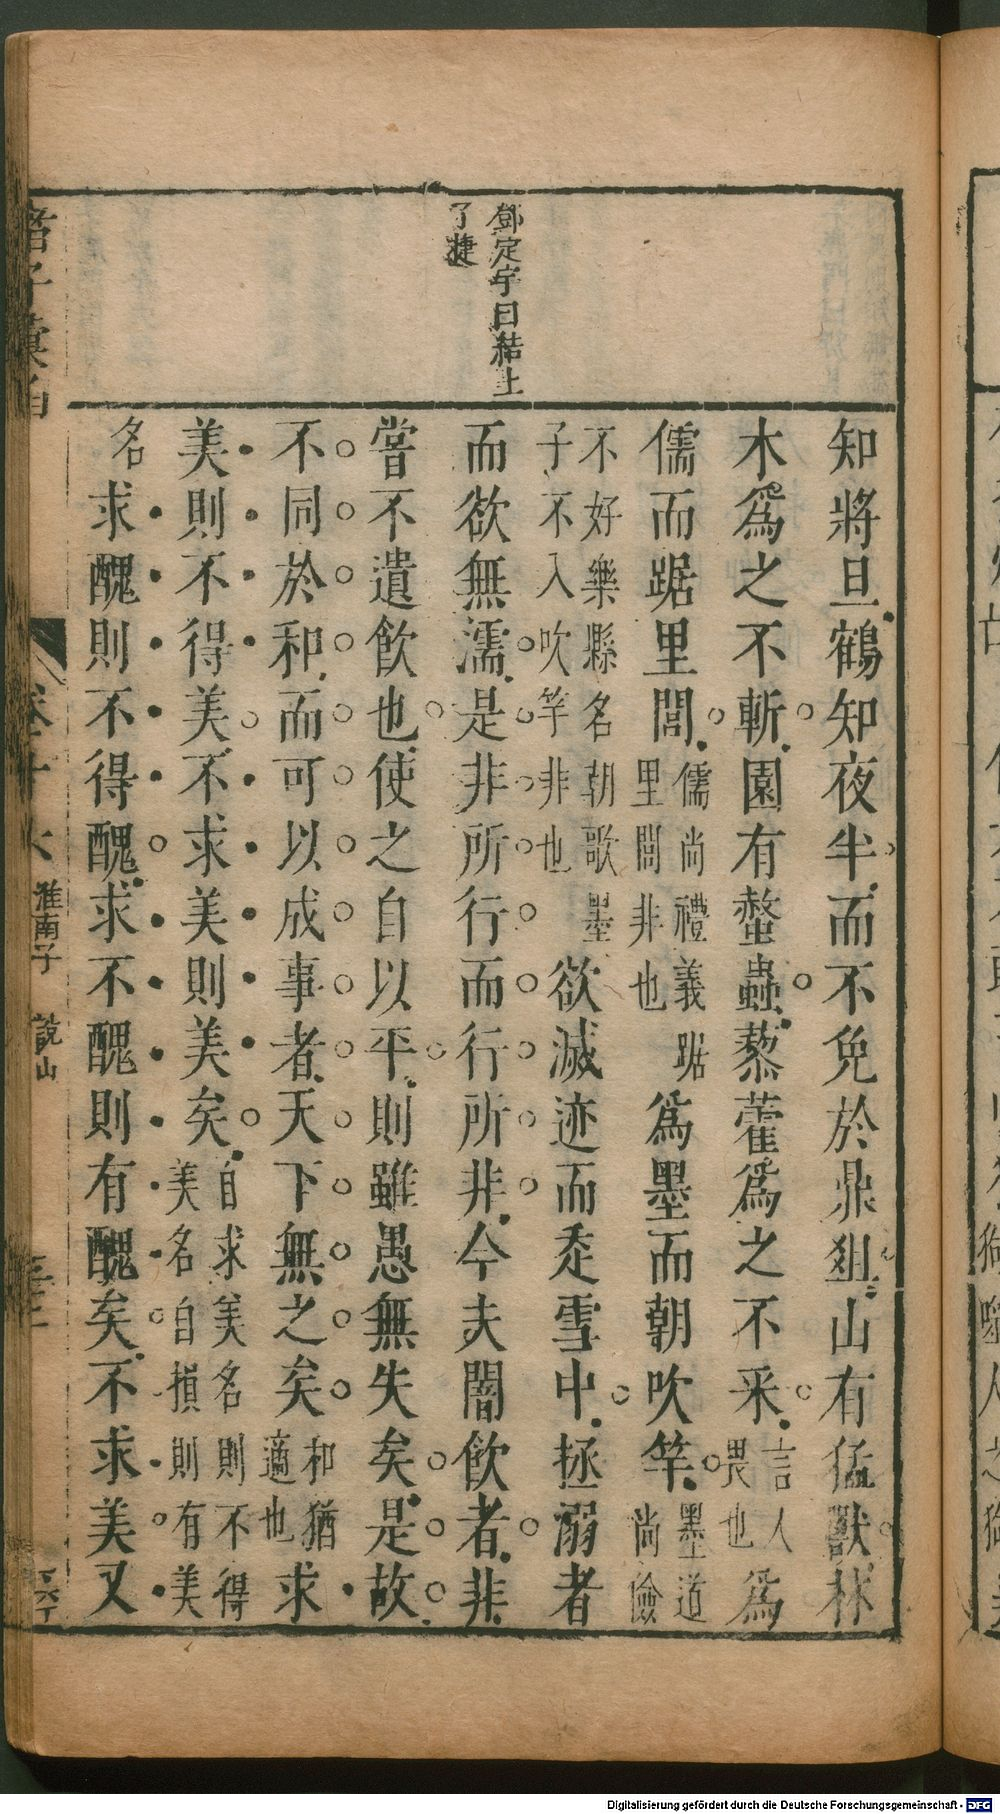 鄧定宇曰結上
了捷
知將旦鶴知夜半而不免於鼎俎山有猛獸林
木爲之不斬園有螫蟲藜藿爲之不采言人畏也爲
儒而踞里閭儒尚禮義踞里閭非也爲墨而朝吹竽墨道尚儉
不好樂縣名朝歌墨子不入吹竽非也欲滅迹而走雪中拯溺者
而欲無濡是非所行而行所非今夫闇飲者非
嘗不遺飲也使之自以平則雖愚無失矣是故
不同於和而可以成事者天下無之矣和猶適也求
美則不得美不求美則美矣自求美名則不得美名自損則有美
名求醜則不得醜求不醜則有醜矣不求美又
淮南子 說山
Digitalisierung gefördert durch die Deutsche Forschungsgemeinschaft - DFG